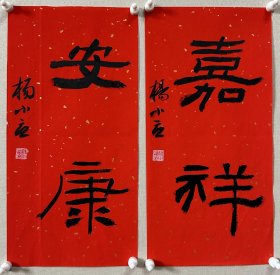 嘉祥
楊小石
安康
楊小石